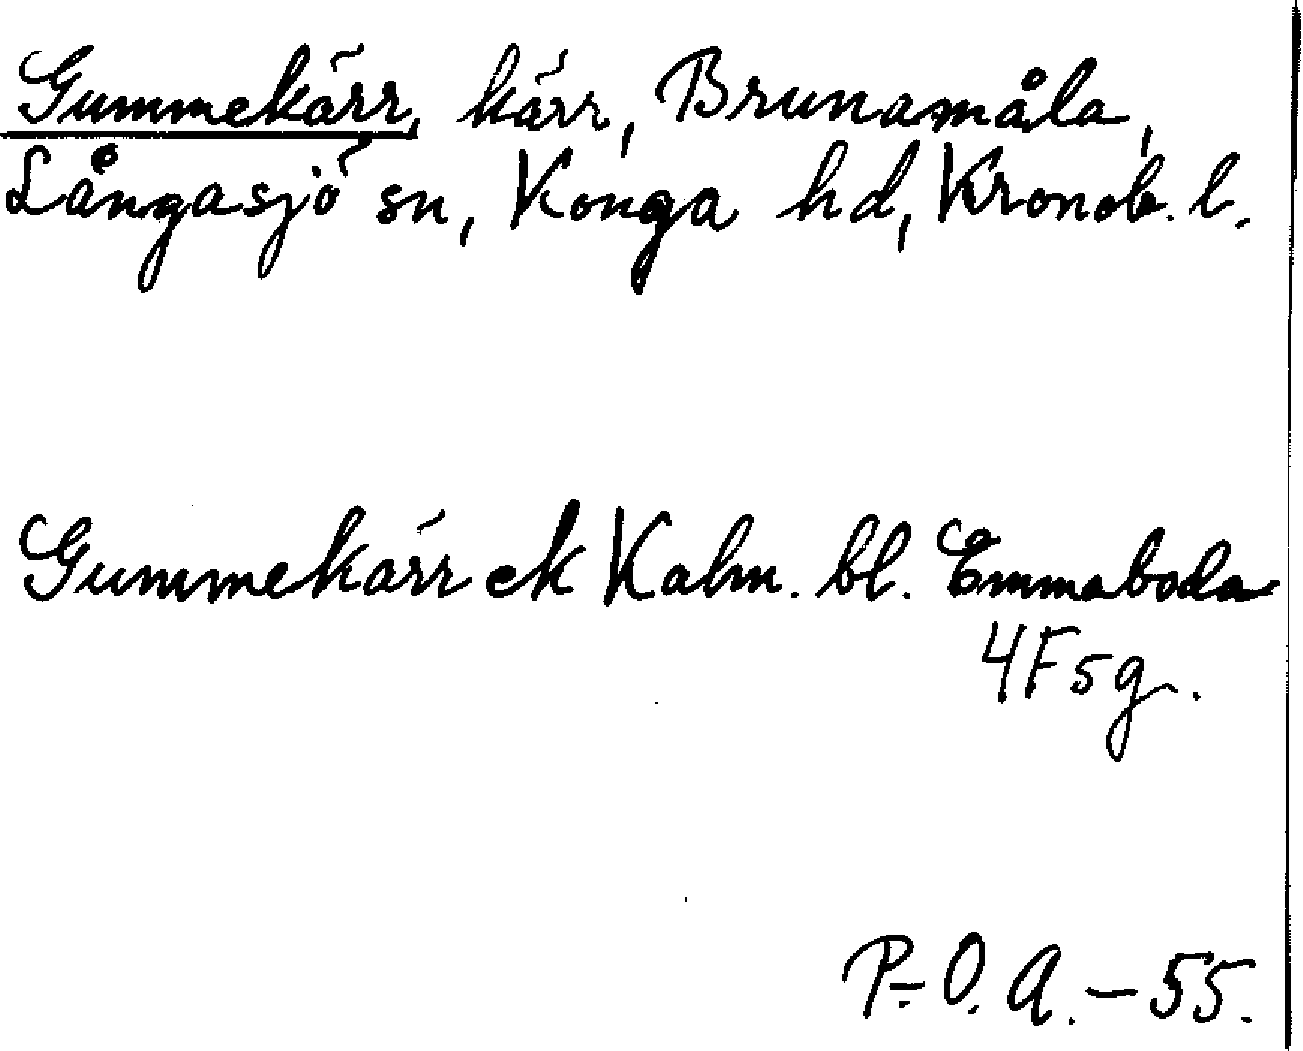 Gummekärr, kärr, Brunamåla,
Långasjö sn, Konga hd, Kronob. l.
Gummekärr ek Kalm. bl. Emmaboda
4F5g.
P.-O. A. - 55.